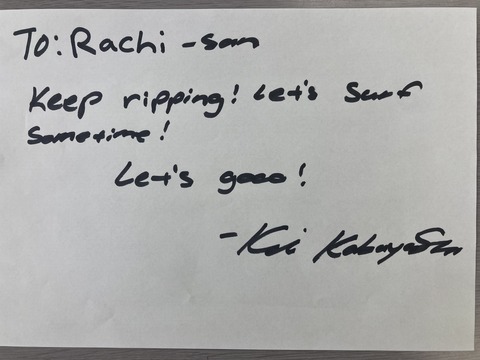 To: Rachi -san
Keep ripping! Let's surf
sometime!
Let's gooo!
- Kai Kobayashi